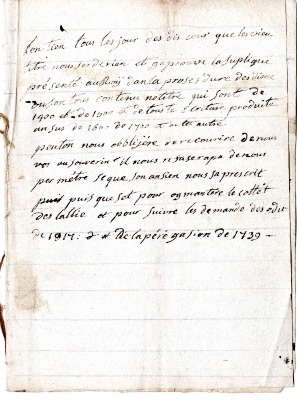 lontien tous les jour des dis cour que les vieu
titre nous serde rien et geprouve la suplique
présenté au Roij dans la prosesdure des dione
ou son tous contenu no titre qui sont de
1400 et de 1500 et de touste écriture produite
au sus de 1600 de 1700 et autre
peuton nous obblijere de recourire de nous
vos au souverin il nous refusera pa de nous
permétre se que son ansien nous sa prescrit
puis que set pour ogmantére le cottét
des lallie et pour suivre les demande des edit
de 1717: et De la péré gasion de 1739 -